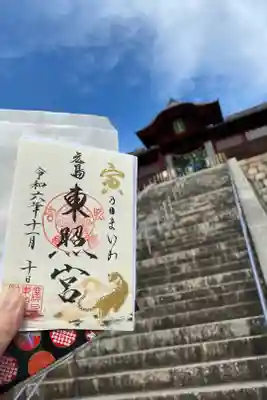 寅
のまいわ
広島
東照宮
令和六年十一月十日